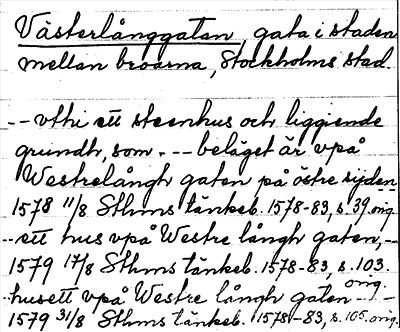 Västerlånggatan, gata i staden
mellan broarna, Stockholms stad.
-- vthi ett steenhus och liggiende
grundh, som --- beläget är vpå
Westrelångh gaten på östre sijden
1578 11/8 Sthms tänkeb. 1578-83, s. 39. orig.
-- ett hus vpå Westre långh gaten, --
1579 17/8 Sthms tänkeb. 1578-83, s. 103. orig.
husett vpå Westre långh gaten ---
1579 31/8 Sthms tänkeb. 1578-83, s. 105. orig.